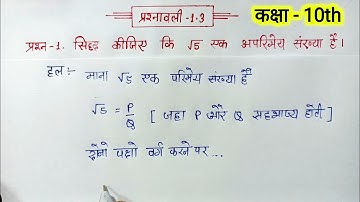 प्रश्नावली-1.3
कक्षा - 10th
प्रश्न-1. सिद्ध कीजिए कि √5 एक अपरिमेय संख्या है।
हल:- माना √5 एक परिमेय संख्या है
√5 = P/Q [ जहा P और Q सहभाज्य होंगी ]
दोनो पक्षो वर्ग करने पर ...